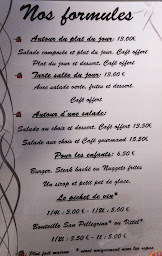 Nos formules
Autour du plat du jour: 13.00€
Salade composé et plat du jour, Café offert
Plat du jour et dessert, Café offert
Tarte salée du jour: 13.00 €
Avec salade verte, frites et dessert,
Café offert
Autour d'une salade:
Salade au choix et dessert, Café offert 13.50€
Salade aux choix et Café gourmand 15.20€
Pour les enfants: 6.50 €
Burger, Steak haché ou Nuggets frites
Un sirop et petit pot de glace.
Le pichet de vin*
1/4L : 3.00 € - 1/2L : 5.00 €
Bouteille San Pellegrino* ou Vittel*
1/2L : 3.50 € - 1L : 5.00 €
Plat fait maison * servi uniquement avec les repas